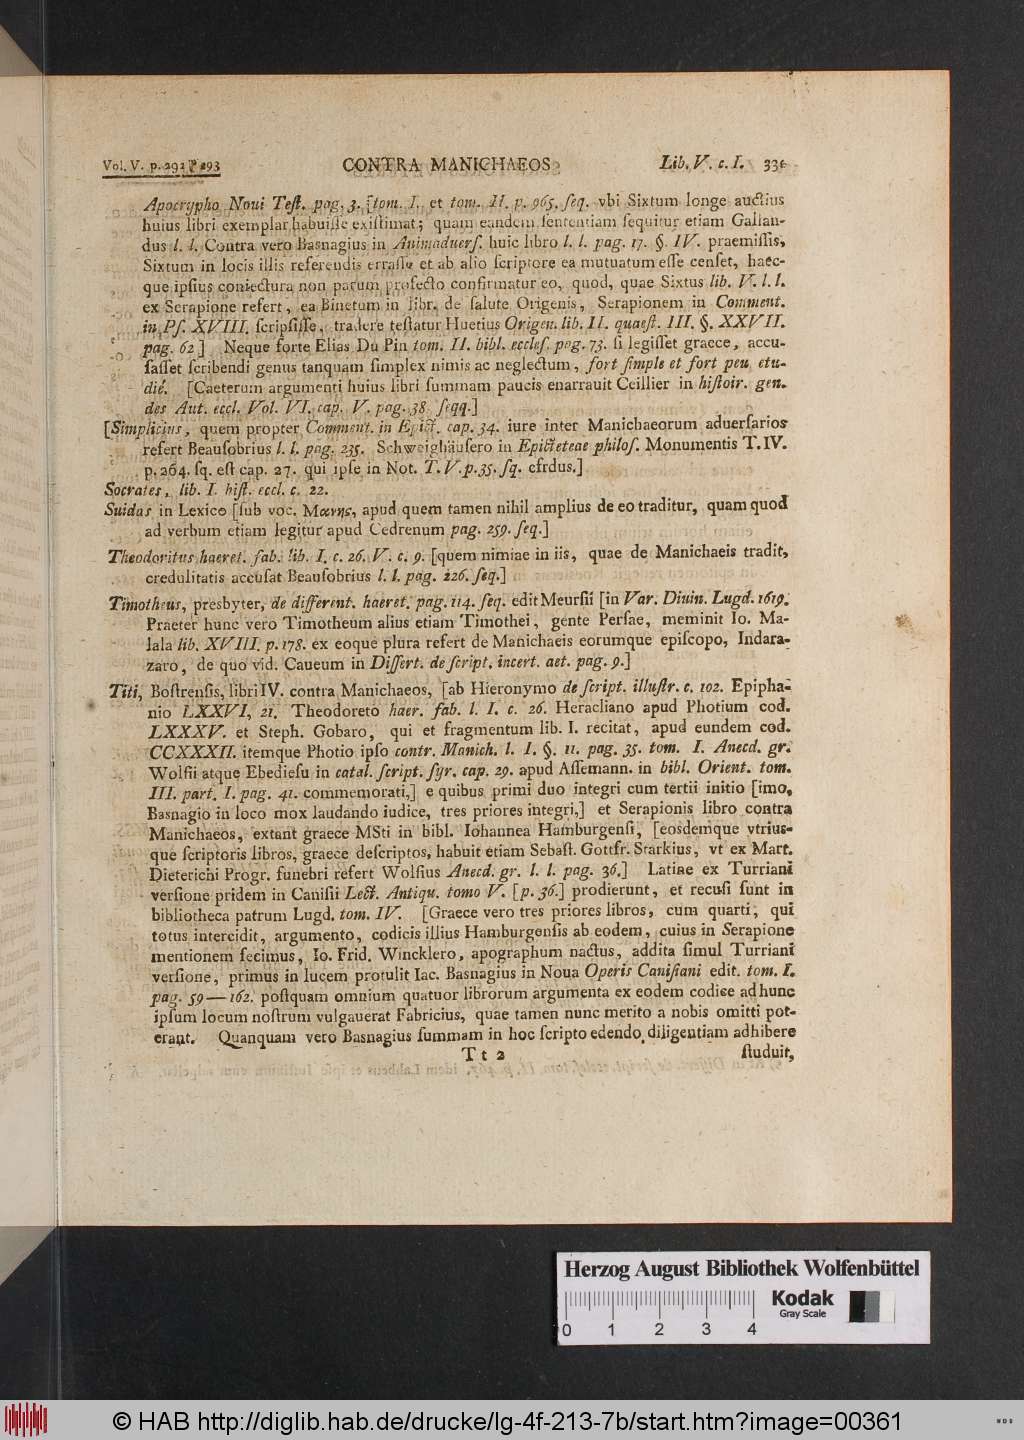 Vol. V. p. 292 293 CONTRA MANICHAEOS Lib. V. c. I.
Apocrypho Noui Teſt. pag. 3. [tom. I. et tom. II. p. 965. ſeq. vbi Sixtum longe auctius
huius libri exemplar habuiſſe exiſtimat; quam eandem ſententiam ſequitur etiam Gallan-
dus l. l. Contra vero Basnagius in Animaduerſ. huic libro l. l. pag. 17. §. IV. praemiſſis,
Sixtum in locis illis referendis erraſſe et ab alio ſcriptore ea mutuatum eſſe cenſet, haec-
que ipſius coniectura non parum profecto confirmatur eo, quod, quae Sixtus lib. V. l. l.
ex Serapione refert, ea Binetum in libr. de ſalute Origenis, Serapionem in Comment.
in Pſ. XVIII. ſcripſiſſe, tradere teſtatur Huetius Origen. lib. II. quaeſt. III. §. XXVII.
pag. 62] Neque forte Elias Du Pin tom. II. bibl. eccleſ. pag. 73. ſi legiſſet graece, accu-
ſaſſet ſcribendi genus tanquam ſimplex nimis ac neglectum, fort ſimple et fort peu etu-
dié. [Caeterum argumenti huius libri ſummam paucis enarrauit Ceillier in hiſtoir. gen.
des Aut. eccl. Vol. VI. cap. V. pag. 38 ſeqq.]
[Simplicius, quem propter Comment. in Epict. cap. 34. iure inter Manichaeorum aduerſarios
refert Beauſobrius l. l. pag. 235. Schweighäuſero in Epicteteae philoſ. Monumentis T. IV.
p. 264. ſq. eſt cap. 27. qui ipſe in Not. T. V. p. 35. ſq. cfrdus.]
Socrates, lib. I. hiſt. eccl. c. 22.
Suidas in Lexico [ſub voc. Μανης, apud quem tamen nihil amplius de eo traditur, quam quod
ad verbum etiam legitur apud Cedrenum pag. 259. ſeq.]
Theodoritus haeret. fab. lib. I. c. 26. V. c. 9. [quem nimiae in iis, quae de Manichaeis tradit,
credulitatis accuſat Beauſobrius l. l. pag. 226. ſeq.]
Timotheus, presbyter, de different. haeret. pag. 114. ſeq. edit Meurſii [in Var. Diuin. Lugd. 1619.
Praeter hunc vero Timotheum alius etiam Timothei, gente Perſae, meminit Io. Ma-
lala lib. XVIII. p. 178. ex eoque plura refert de Manichaeis eorumque epiſcopo, Indara-
zaro, de quo vid. Caueum in Diſſert. de ſcript. incert. aet. pag. 9.]
Titi, Boſtrenſis, libri IV. contra Manichaeos, [ab Hieronymo de ſcript. illuſtr. c. 102. Epipha-
nio LXXVI, 21. Theodoreto haer. fab. l. I. c. 26. Heracliano apud Photium cod.
LXXXV. et Steph. Gobaro, qui et fragmentum lib. I. recitat, apud eundem cod.
CCXXXII. itemque Photio ipſo contr. Manich. l. I. §. 11. pag. 35. tom. I. Anecd. gr.
Wolfii atque Ebedieſu in catal. ſcript. ſyr. cap. 29. apud Aſſemann. in bibl. Orient. tom.
III. part. I. pag. 41. commemorati,] e quibus primi duo integri cum tertii initio [imo,
Basnagio in loco mox laudando iudice, tres priores integri,] et Serapionis libro contra
Manichaeos, extant graece MSti in bibl. Iohannea Hamburgenſi, [eosdemque vtrius-
que ſcriptoris libros, graece deſcriptos, habuit etiam Sebaſt. Gottfr. Starkius, vt ex Mart.
Dieterichi Progr. funebri refert Wolfius Anecd. gr. l. l. pag. 36.] Latine ex Turriani
verſione pridem in Caniſii Lect. Antiqu. tomo V. [p. 36.] prodierunt, et recuſi ſunt in
bibliotheca patrum Lugd. tom. IV. [Graece vero tres priores libros, cum quarti, qui
totus intercidit, argumento, codicis illius Hamburgenſis ab eodem, cuius in Serapione
mentionem fecimus, Io. Frid. Wincklero, apographum nactus, addita ſimul Turriani
verſione, primus in lucem protulit Iac. Basnagius in Noua Operis Caniſiani edit. tom. I.
pag. 59—162. poſtquam omnium quatuor librorum argumenta ex eodem codice ad hunc
ipſum locum noſtrum vulgauerat Fabricius, quae tamen nunc merito a nobis omitti pot-
erant. Quanquam vero Basnagius ſummam in hoc ſcripto edendo diligentiam adhibere
T t 2 ſtuduit,
Herzog August Bibliothek Wolfenbüttel
Kodak
Gray Scale
0 1 2 3 4
© HAB http://diglib.hab.de/drucke/lg-4f-213-7b/start.htm?image=00361